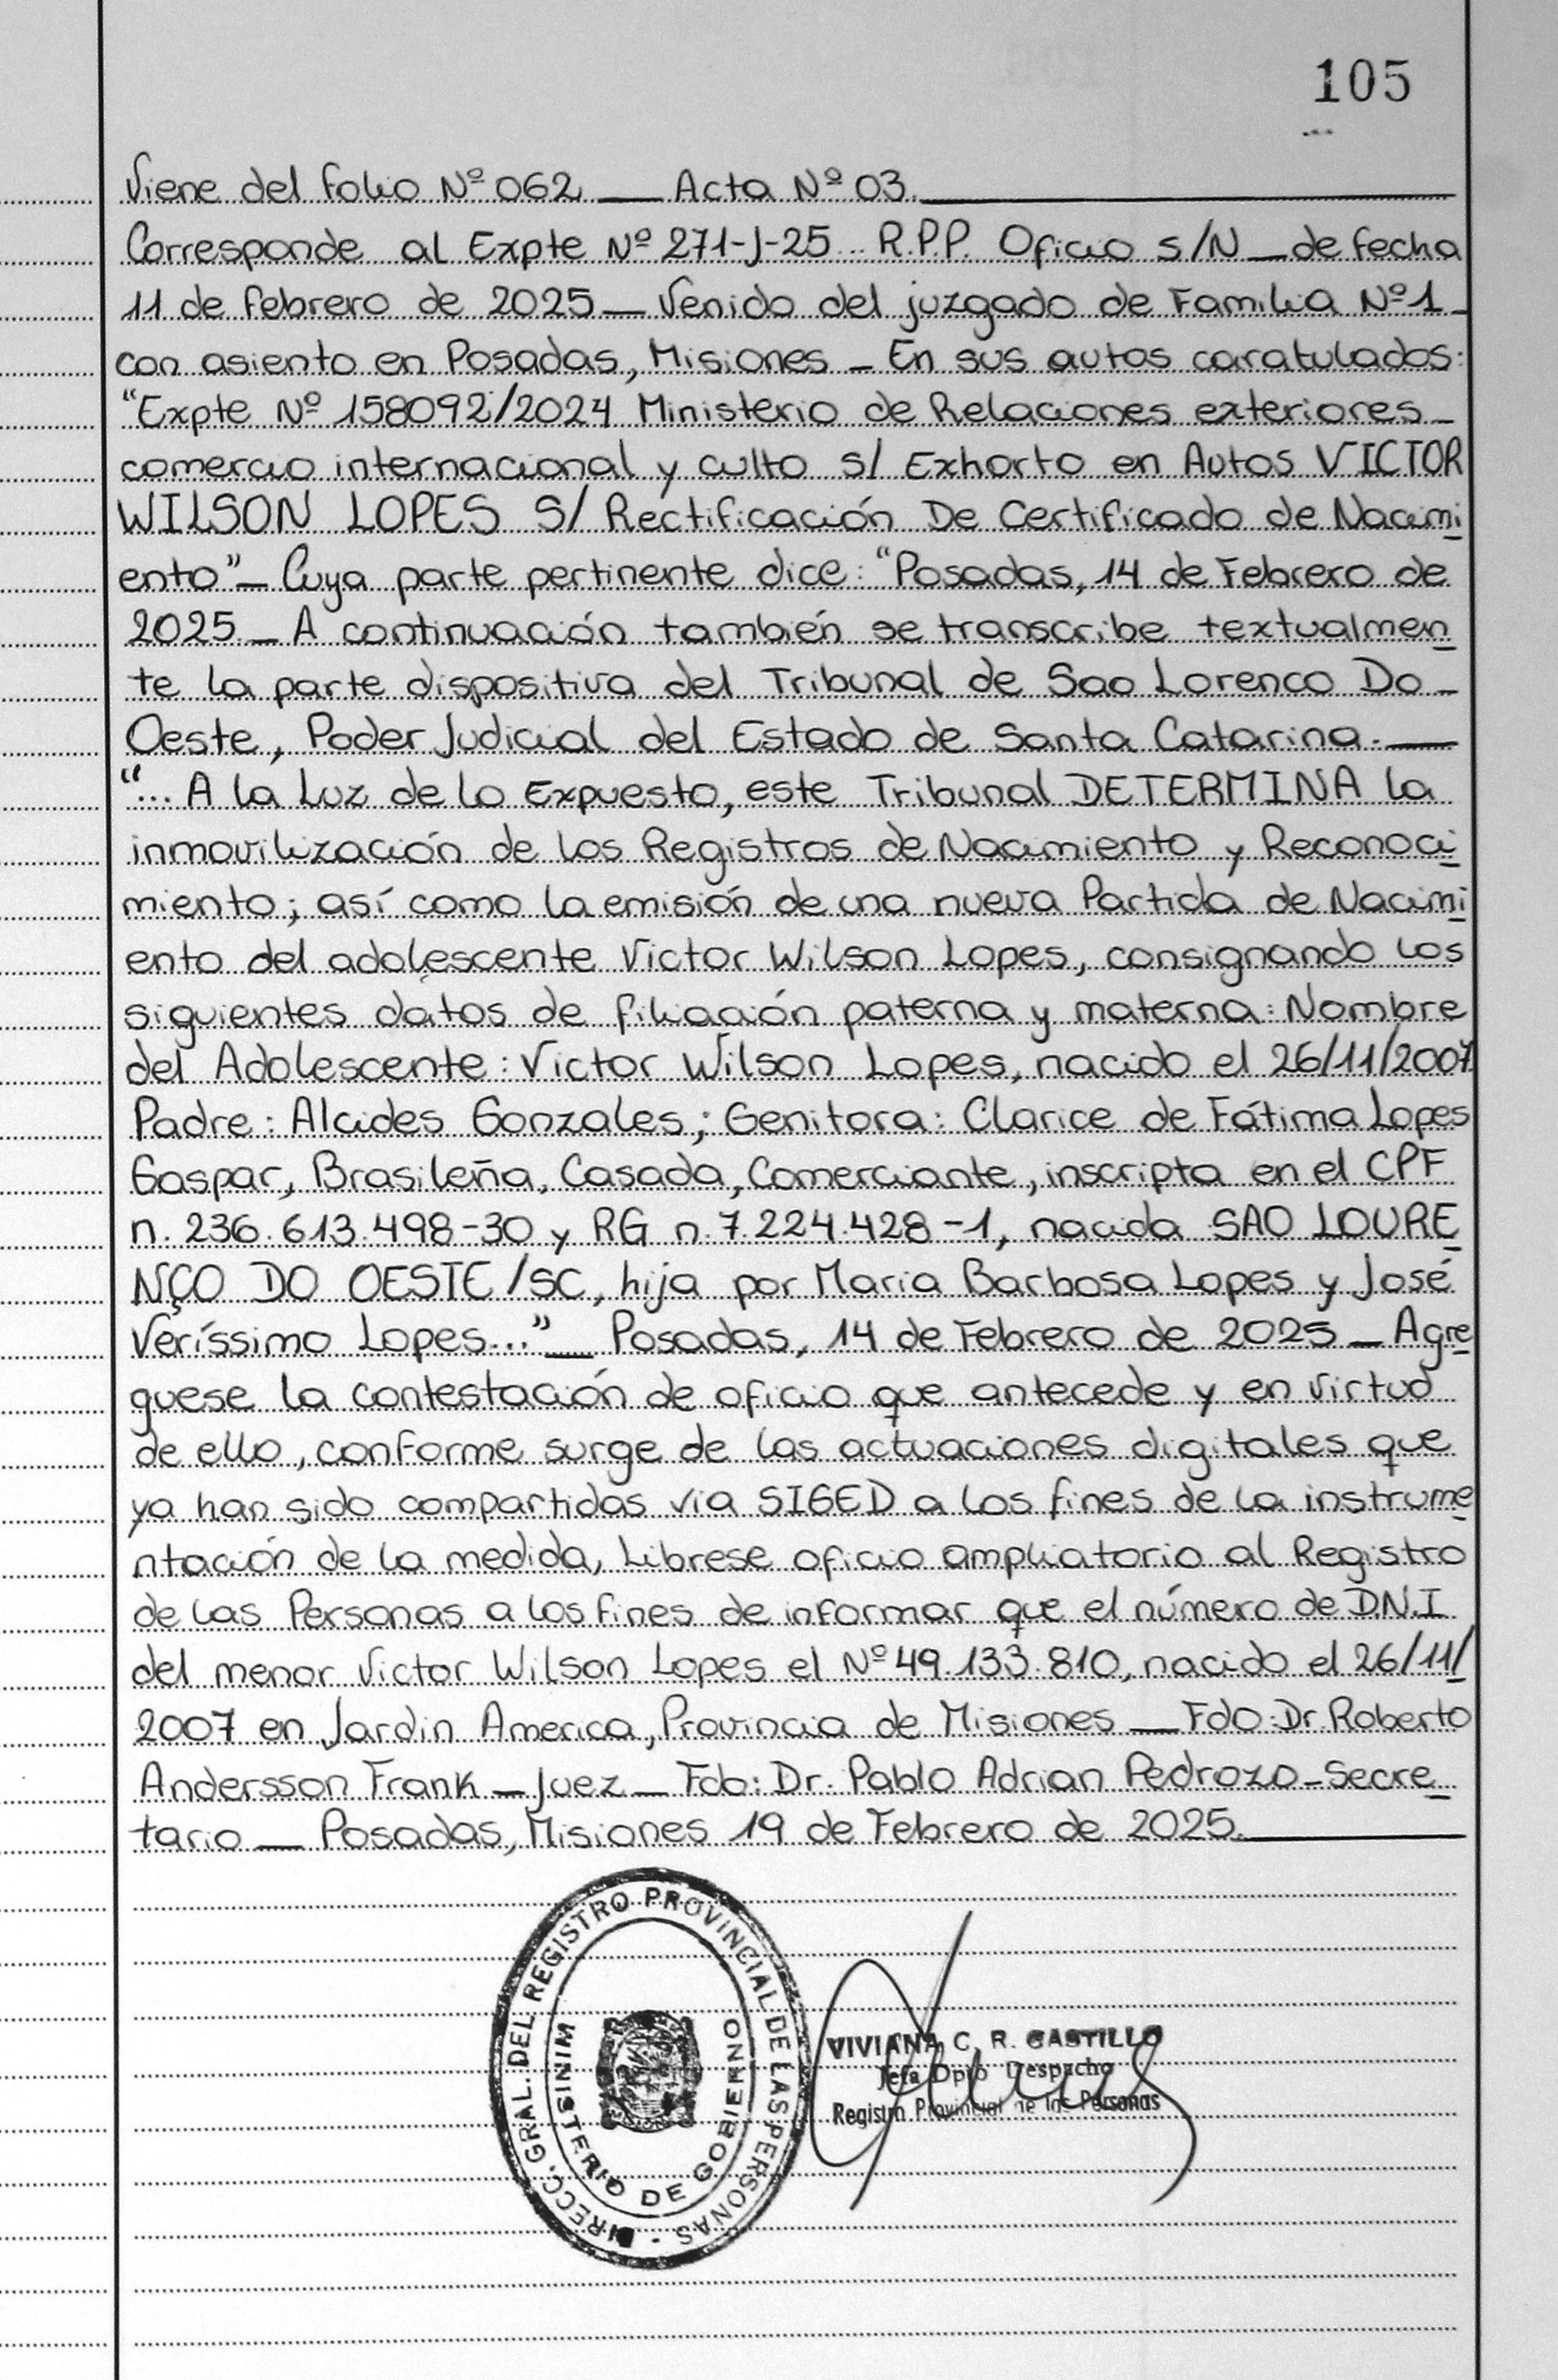 105
Viene del folio Nº 062 __ Acta Nº 03.
Corresponde al Expte Nº 271-J-25... R.P.P. Oficio s/N _ de fecha
11 de febrero de 2025 _ Venido del juzgado de Familia Nº 1 _
con asiento en Posadas, Misiones _ En sus autos caratulados:
"Expte Nº 158092/2024 Ministerio de Relaciones exteriores _
comercio internacional y culto s/ Exhorto en Autos VICTOR
WILSON LOPES S/ Rectificación De Certificado de Nacimi
ento" _ Cuya parte pertinente dice: "Posadas, 14 de Febrero de
2025 _ A continuación también se transcribe textualmen
te la parte dispositiva del Tribunal de Sao Lorenco Do _
Oeste, Poder Judicial del Estado de Santa Catarina. __
"... A la Luz de lo Expuesto, este Tribunal DETERMINA la
inmovilización de los Registros de Nacimiento y Reconoci
miento; así como la emisión de una nueva Partida de Nacimi
ento del adolescente Victor Wilson Lopes, consignando los
siguientes datos de filiación paterna y materna: Nombre
del Adolescente: Victor Wilson Lopes, nacido el 26/11/2007
Padre: Alcides Gonzales; Genitora: Clarice de Fátima Lopes
Gaspar, Brasileña, Casada, Comerciante, inscripta en el CPF
n. 236.613.498-30 y RG n. 7.224.428-1, nacida SAO LOURE
NÇO DO OESTE/SC, hija por Maria Barbosa Lopes y José
Veríssimo Lopes..." __ Posadas, 14 de Febrero de 2025 _ Agre
guese la contestación de oficio que antecede y en virtud
de ello, conforme surge de las actuaciones digitales que
ya han sido compartidas via SIGED a los fines de la instrume
ntación de la medida, Librese oficio ampliatorio al Registro
de las Personas a los fines de informar que el número de D.N.I
del menor Victor Wilson Lopes el Nº 49.133.810, nacido el 26/11/
2007 en Jardin America, Provincia de Misiones __ Fdo: Dr. Roberto
Andersson Frank _ Juez _ Fdo: Dr. Pablo Adrian Pedrozo _ Secre
tario __ Posadas, Misiones 19 de Febrero de 2025.
DIRECC. GRAL. DEL REGISTRO PROVINCIAL DE LAS PERSONAS -
MINISTERIO DE GOBIERNO
VIVIANA C. R. CASTILLO
Jefa Dpto Despacho
Registro Provincial de las Personas